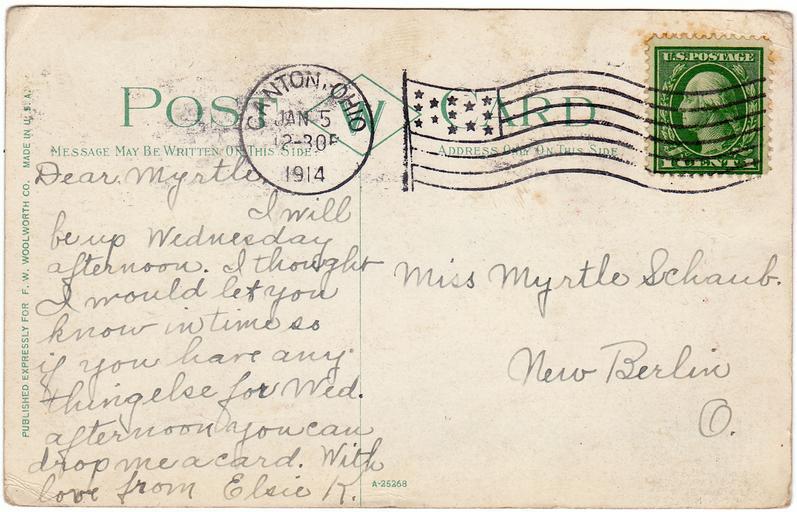 POST CARD
W
CANTON, OHIO
JAN 5
12-30P
1914
U.S. POSTAGE
CENT
MESSAGE MAY BE WRITTEN ON THIS SIDE.
ADDRESS ONLY ON THIS SIDE
PUBLISHED EXPRESSLY FOR F. W. WOOLWORTH CO. MADE IN U. S. A.
Dear Myrtle
I will
be up Wednesday
afternoon. I thought
I would let you
know in time so
if you have any
thing else for Wed.
afternoon you can
drop me a card. With
love from Elsie K.
Miss Myrtle Schaub.
New Berlin
O.
A-25268